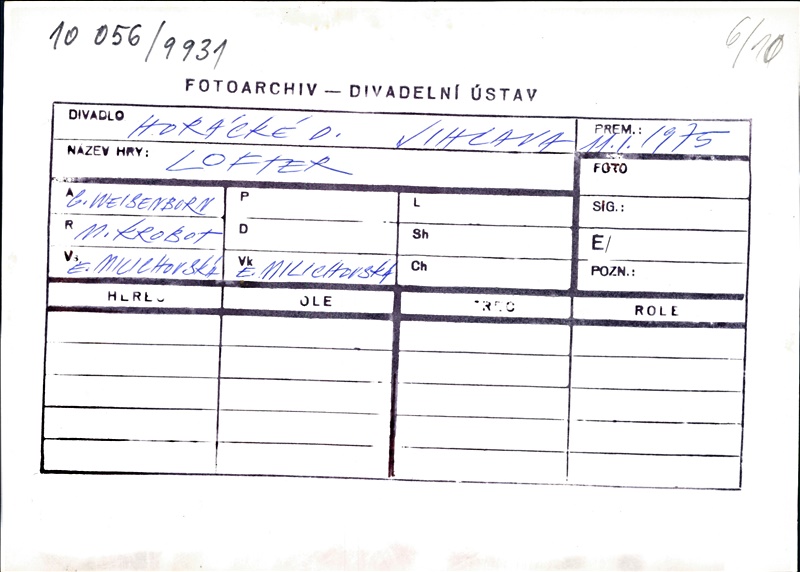 10 056/9931
6/10
FOTOARCHIV — DIVADELNÍ ÚSTAV
DIVADLO HORÁCKÉ D. JIHLAVA
PREM.: 11.1.1975
NÁZEV HRY: LOFTER
FOTO
A G. WEISENBORN
P
L
SIG.:
R M. KROBOT
D
Sh
E/
E. MILICHOVSKÁ
Vk E. MILICHOVSKÁ
Ch
POZN.:
HEREC
ROLE
HEREC
ROLE